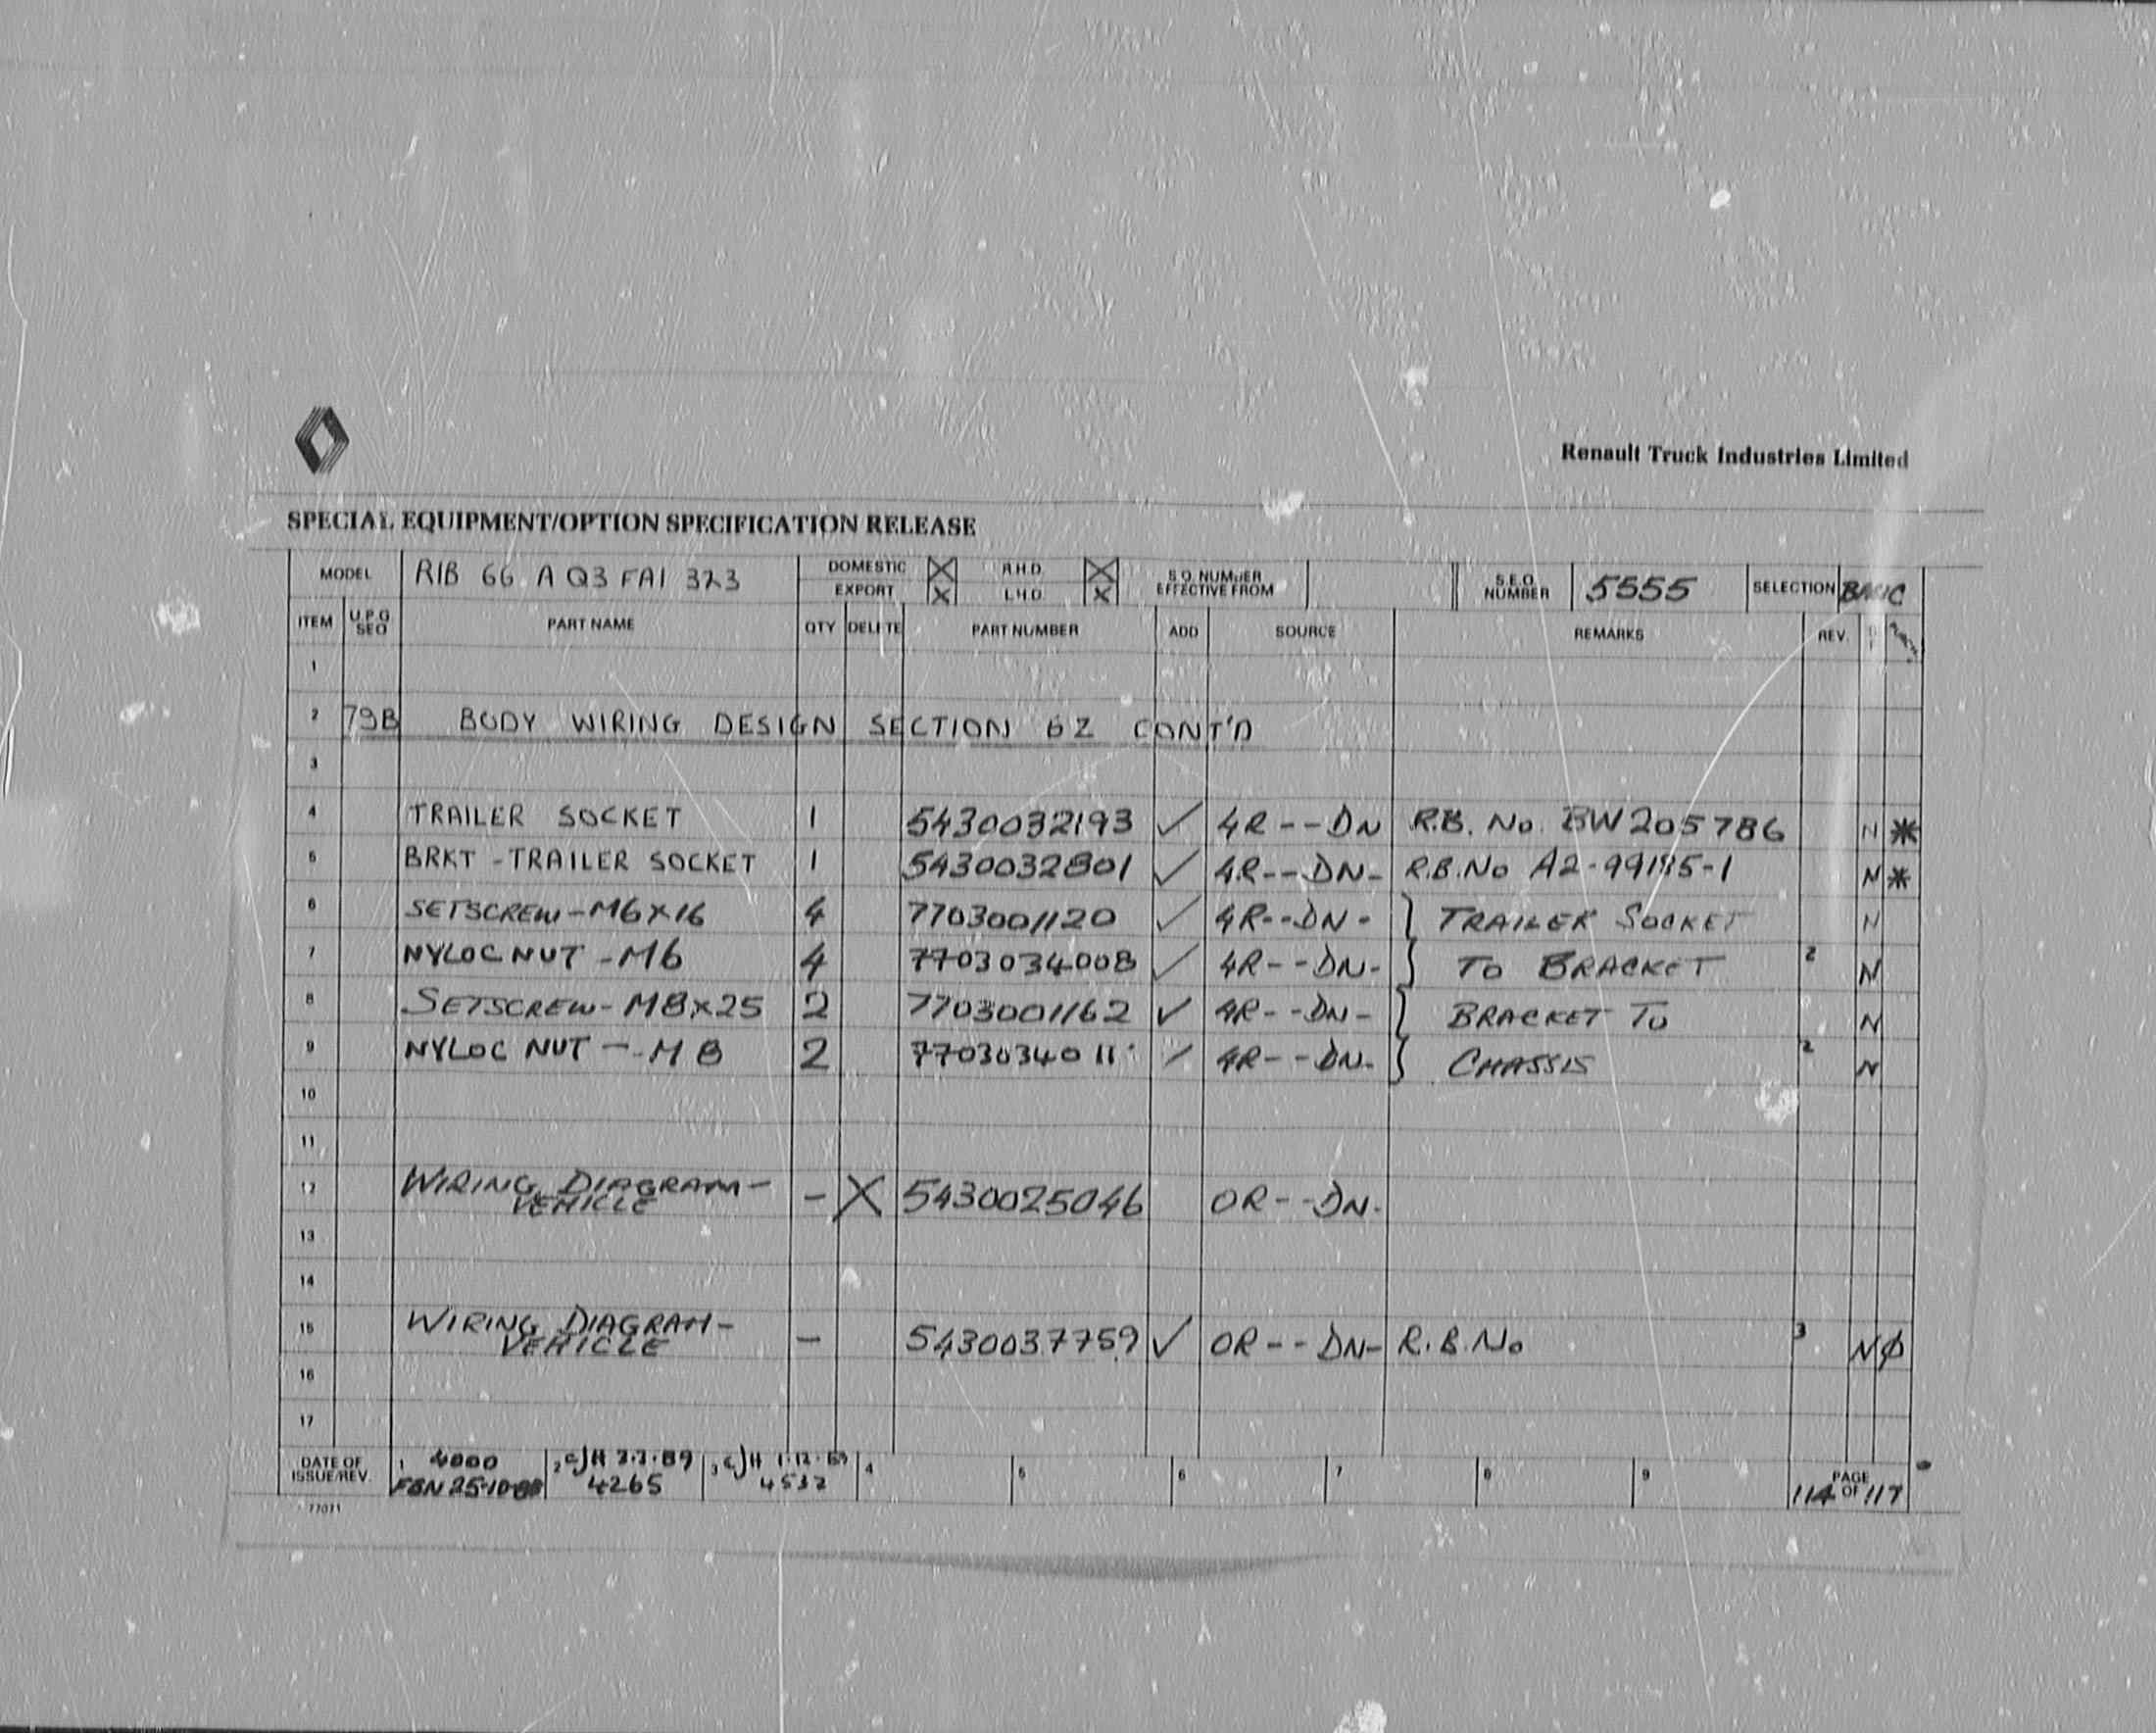 Renault Truck Industries Limited
SPECIAL EQUIPMENT/OPTION SPECIFICATION RELEASE
MODEL R1B 66 A Q3 FA1 323 DOMESTIC X R.H.D. X S.O. NUMBER EFFECTIVE FROM S.E.O. NUMBER 5555 SELECTION BASIC
EXPORT X L.H.D. X
ITEM U.P.G SEO PART NAME QTY DELETE PART NUMBER ADD SOURCE REMARKS REV.
1
2 79B BODY WIRING DESIGN SECTION 62 CONT'D
3
4 TRAILER SOCKET 1 5430032193 ✓ 4R--DN R.B. No. BW205786 N *
5 BRKT - TRAILER SOCKET 1 5430032801 ✓ 4R--DN- R.B.No A2-99185-1 N *
6 SETSCREW-M6x16 4 7703001120 ✓ 4R--DN- } TRAILER SOCKET N
7 NYLOC NUT -M6 4 7703034008 ✓ 4R--DN- } TO BRACKET 2 N
8 SETSCREW-M8x25 2 7703001162 ✓ 4R--DN- } BRACKET TO N
9 NYLOC NUT -M8 2 ✓ 4R--DN- } CHASSIS 2 N
10
11
12 WIRING DIAGRAM- - X 5430025046 OR--DN-
VEHICLE
13
14
15 WIRING DIAGRAM- - 5430037759 ✓ OR--DN- R.B.No 3 N Ø
VEHICLE
16
17
DATE OF ISSUE/REV. 1 4000 2 CJH 3 CJH 1.12.89 4 5 6 7 8 9 PAGE
FBN 25-10-88 4265 4532 114 OF 117
77071